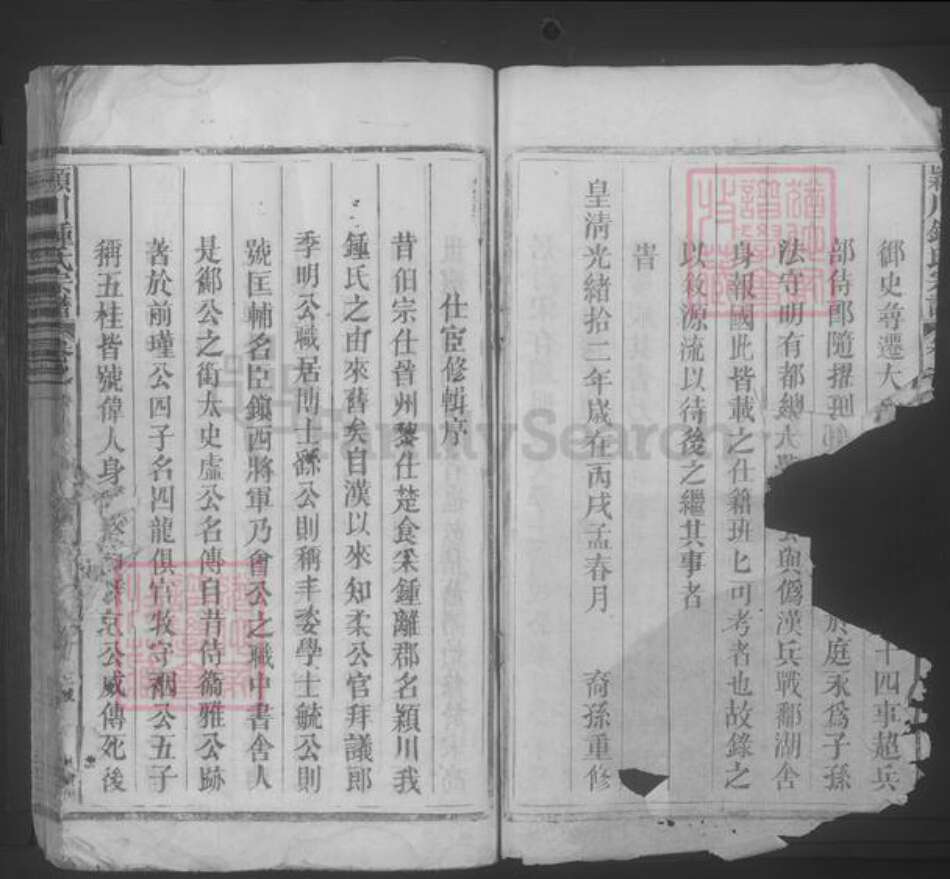 御史尋遷大
十四事超兵
部侍郎隨擢刑
於庭永爲子孫
法守明有都總
公與僞漢兵戰鄱湖舍
身報國此皆載之仕籍班匕可考者也故錄之
以敘源流以待後之繼其事者
旹
皇清光緒拾二年歲在丙戌孟春月 裔孫重修
仕宦修輯序
昔伯宗仕晉州黎仕楚食采鍾離郡名穎川我
鍾氏之由來舊矣自漢以來知柔公官拜議郎
季明公職居博士繇公則稱丰委學士毓公則
號匡輔名臣鎮西將軍乃會公之職中書舍人
是鄉公之銜太史虛公名傳自昔侍衞雅公跡
著於前瑾公四子名四龍俱官牧守裀公五子
稱五桂皆號偉人身
公威傳死後
穎川鍾氏宗譜
FamilySearch